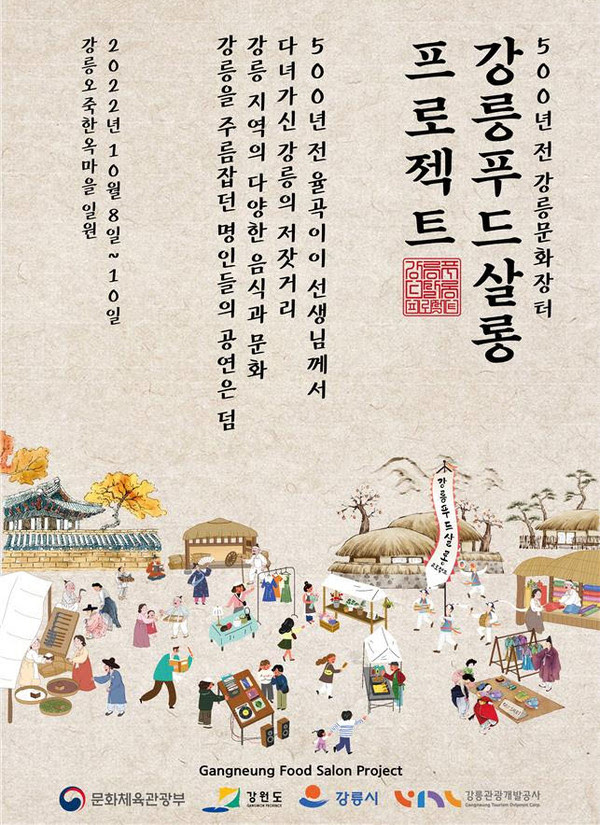 500년 전 강릉문화장터
강릉푸드살롱
프로젝트
500년 전 율곡이이 선생님께서
다녀가신 강릉의 저잣거리
강릉 지역의 다양한 음식과 문화
강릉을 주름잡던 명인들의 공연은 덤
2022년 10월 8일~10일
강릉오죽한옥마을 일원
강릉푸드살롱
프로젝트
Gangneung Food Salon Project
문화체육관광부
강원도
GANGWON PROVINCE
강릉시
강릉관광개발공사